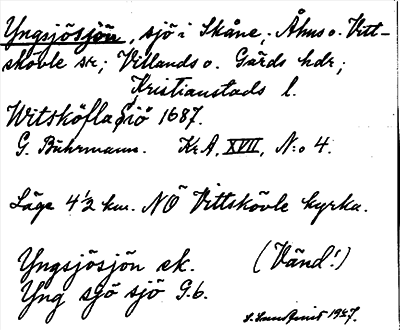 Yngsjösjön, sjö i Skåne, Åhus o. Vitt-
skövle sr; Villands o. Gärds hdr;
Kristianstads l.
Witsköfla Siö 1687.
G. Buhrmann. KrA, XVII, N:o 4.
Läge 4 1/2 km. NÖ Vittskövle kyrka.
Yngsjösjön ek. (Vänd!)
Yng sjö sjö Gb.
1927.